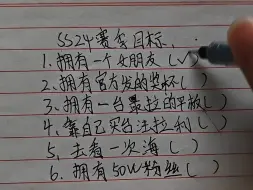 SS24赛季目标.
1.拥有一个女朋友(√)
2.拥有官方发的奖杯( )
3.拥有一台最拉的平板( )
4.靠自己买台法拉利( )
5.去看一次海( )
6.拥有50W粉丝( )